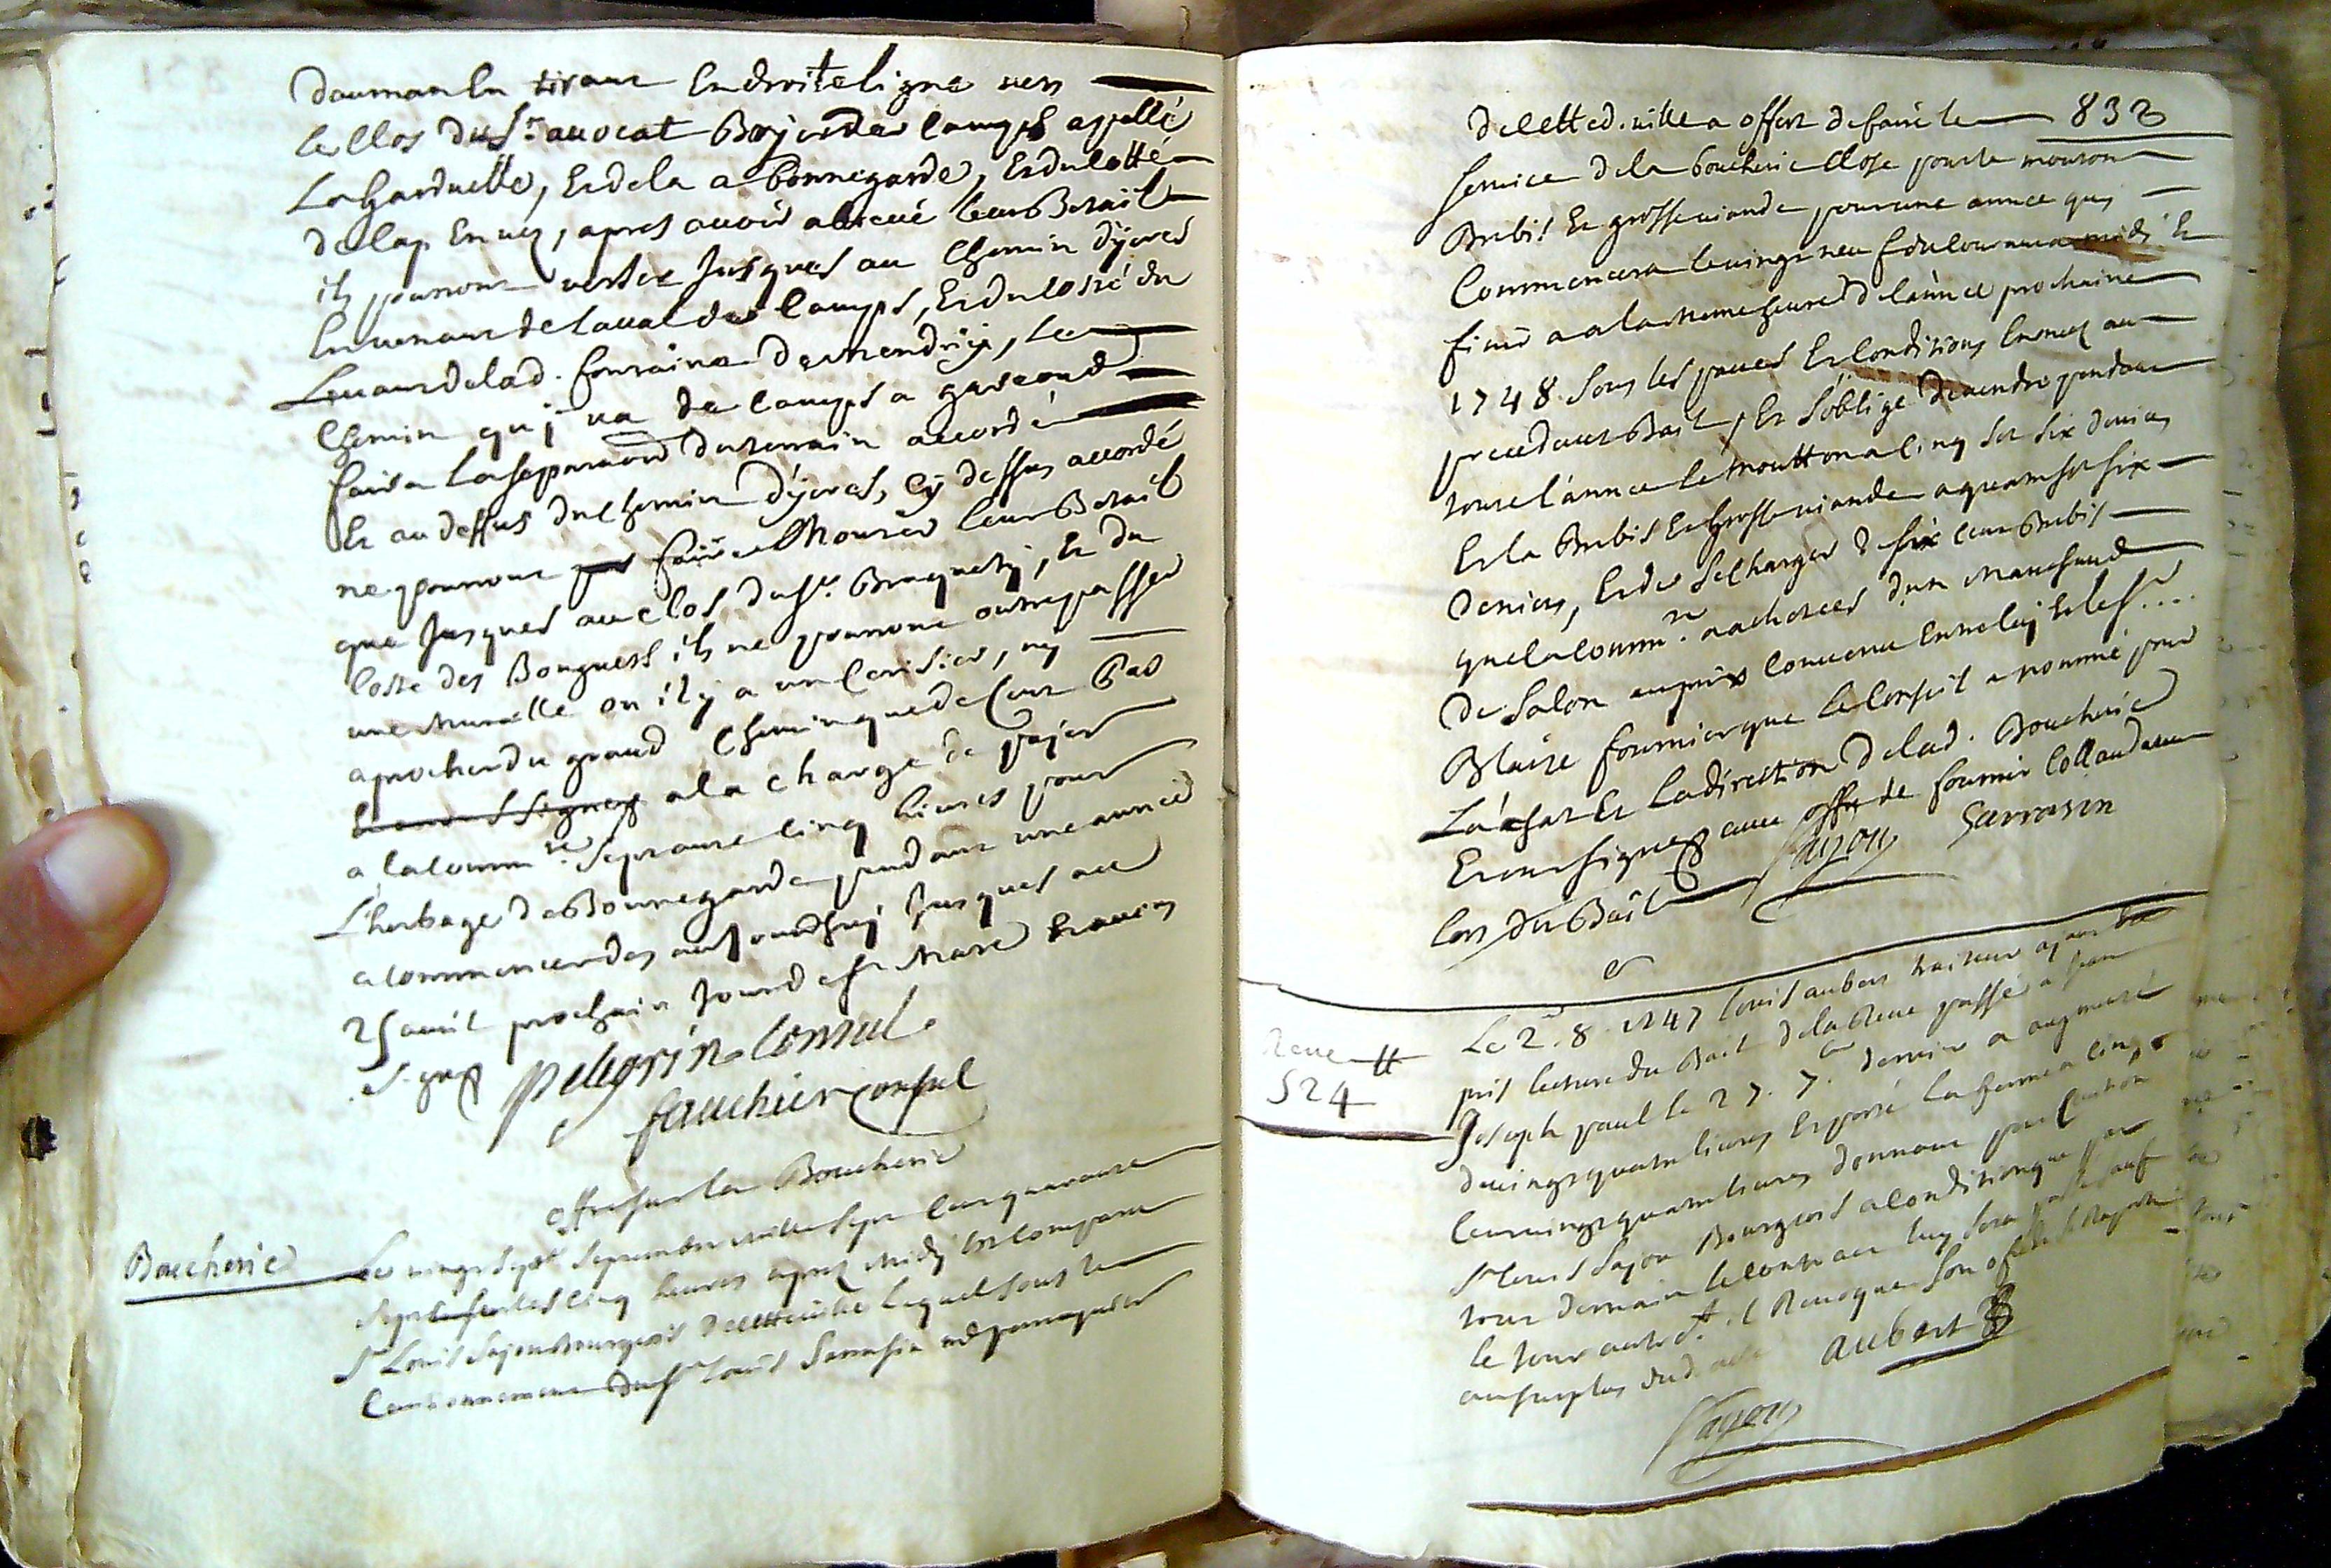 daumon en tirant En droite ligne vers
le Clos du Sr. avocat Boyer des camps appellé
La harduette, Et de la a bonnegarde, Et du cotté
de lap Envez, apres avoir abreuvé leur Betail
ils pourront Jusques au Chemin d'yeres
En venant de laval des camps, Et du costé du
Levant de lad. fontaine le
Chemin quj va de camps a gareoud
faira la separation du terrain accordé
Et au dessus du chemin d'yeres, cy dessus accordé
ne pourront faire Monter leur Betail
que Jusques au clos du Sr. Braquety, Et du
Costé des Bouguers ils ne pourront outrepasser
une Muraille ou il y a un Cerisier, ny
aprocher du grand Chemin que de Cent pas
a la charge de payer
a la Commté. Septante Cinq livres pour
L'herbage de Bonnegarde pendant une année
a commencer des aujourdhuj Jusques au
25 avril prochain Jour de St Marc
Signez pelegrin Consul
fauchier Consul
offre sur la Boucherie
Boucherie
Le vingt Sept Septembre mille Sept Cens quarante
Sept les cinq heures apres midy Est Comparu
Sr Louis Sajou Bourgeois de cette ville lequel sous le
Cautionnement du Sr Louis Sarrasin
de cetted. ville a offert de faire le 832
Service de la boucherie Close pour le mouton
Brebis Et grosse viande pour une année quj
Commencera le vingt neu du Courant a midj Et
finir a a la meme heure de l'année prochaine
1748. Sous les pactes Et Conditions au
precedent Bail, Et S'oblige de vendre pendant
toute l'année le Moutton a Cinq sos six deniers
Et la Brebis Et Grosse viande a quatre sos six
deniers, Et de se charger de six cent Brebis
que la Commté. a achetées d'un Marchand
de Salon au prix Convenu Entre luy Et le Sr....
Blaise fournier que le Conseil a nommé pour
L'achat Et La direction de lad. Boucherie
Et ont signez avec offre de fournir
lors du Bail Sajou Sarrasin
Reve 524 ₶
Le 2. 8. 1747 Louis aubert traiteur
pris lecture du Bail de la Reve passé a Jean
Joseph paul le 27. 7. dernier a augmenté
de vingt quatre livres Et porté la ferme a Cinq
Cent vingt quatre livres donnant pour Caution
Sr Louis Sajou Bourgeois a Condition que par
tout demain le Contract luy sera passé
le tour Revoque son offre
au surplus dud. acte aubert
Sajou